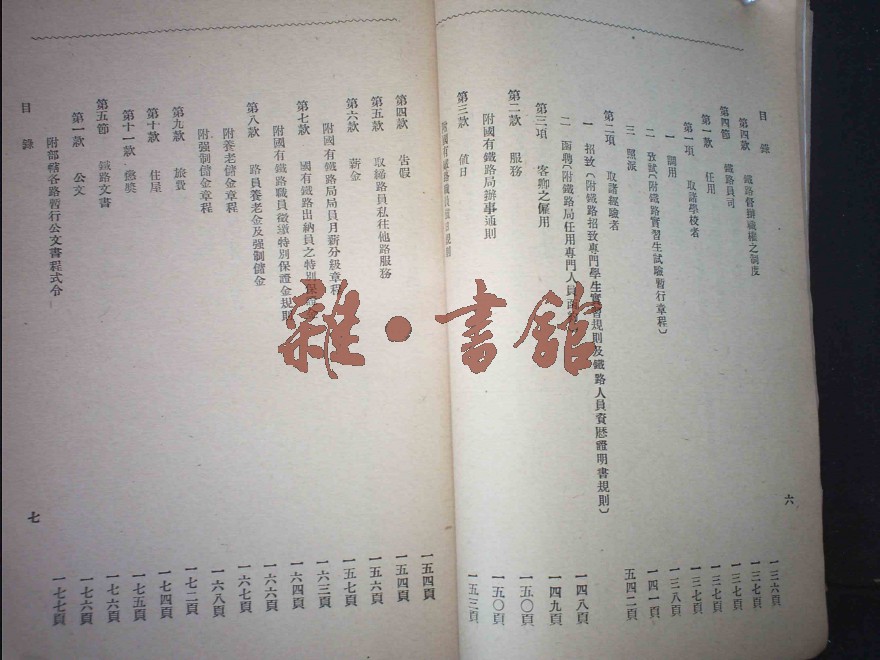 目錄
六
第四款 鐵路督辦職權之制度 一三六頁
第四節 鐵路員司 一三七頁
第一款 任用 一三七頁
第一項 取諸學校者 一三七頁
一 調用 一三八頁
二 攷試(附鐵路實習生試驗暫行章程) 一四一頁
三 照派 五四二頁
第二項 取諸經驗者
一 招致(附鐵路招致專門學生實習規則及鐵路人員資歷證明書規則) 一四八頁
二 函聘(附鐵路局任用專門人員 一四九頁
第三項 客卿之僱用 一五〇頁
第二款 服務 一五〇頁
附國有鐵路局辦事通則
第三款 值日 一五三頁
附國有鐵路職員值日規則
第四款 告假 一五四頁
第五款 取締路員私往他路服務 一五四頁
第六款 薪金 一五六頁
附國有鐵路局局員月薪分級章程 一五七頁
第七款 國有鐵路出納員之特別保證金 一六三頁
附國有鐵路職員徵繳特別保證金規則 一六四頁
第八款 路員養老金及强制儲金 一六六頁
附養老儲金章程 一六七頁
附强制儲金章程 一六八頁
第九款 旅費 一七二頁
第十款 住屋 一七四頁
第十一款 懲獎 一七五頁
第五節 鐵路文書 一七六頁
第一款 公文 一七六頁
附部轄各路暫行公文書程式令 一七七頁
目錄
七
雜·書館